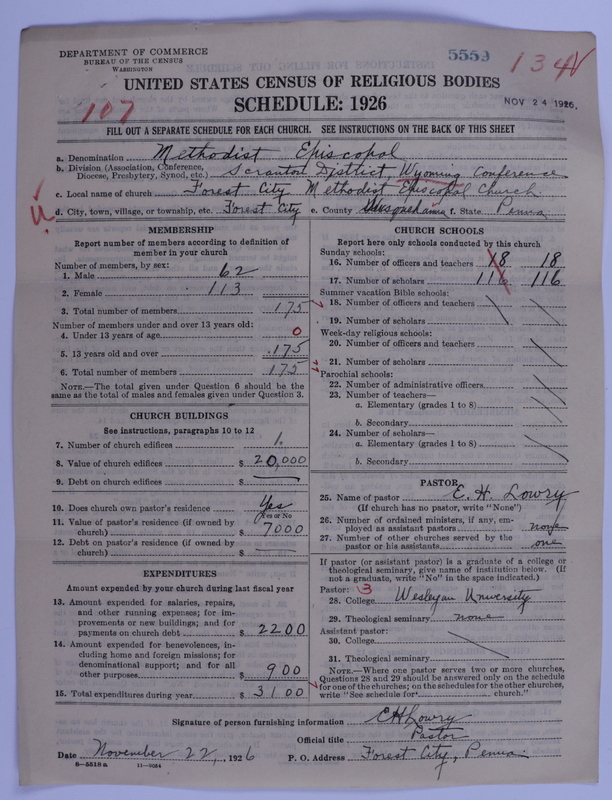 DEPARTMENT OF COMMERCE
BUREAU OF THE CENSUS
WASHINGTON
5559
134
107
UNITED STATES CENSUS OF RELIGIOUS BODIES
SCHEDULE: 1926
NOV 24 1926.
FILL OUT A SEPARATE SCHEDULE FOR EACH CHURCH. SEE INSTRUCTIONS ON THE BACK OF THIS SHEET
a. Denomination Methodist Episcopal
b. Division (Association, Conference, Diocese, Presbytery, Synod, etc.) Scranton District, Wyoming Conference
c. Local name of church Forest City Methodist Episcopal Church
d. City, town, village, or township, etc. Forest City e. County Susquehanna f. State Penna
MEMBERSHIP
Report number of members according to definition of
member in your church
Number of members, by sex:
1. Male 62
2. Female 113
3. Total number of members 175
Number of members under and over 13 years old:
4. Under 13 years of age 0
5. 13 years old and over 175
6. Total number of members 175
NOTE.—The total given under Question 6 should be the
same as the total of males and females given under Question 3.
CHURCH BUILDINGS
See instructions, paragraphs 10 to 12
7. Number of church edifices 1.
8. Value of church edifices $ 20,000
9. Debt on church edifices $ —
10. Does church own pastor's residence Yes
Yes or No
11. Value of pastor's residence (if owned by
church) $ 7000
12. Debt on pastor's residence (if owned by
church) $ —
EXPENDITURES
Amount expended by your church during last fiscal year
13. Amount expended for salaries, repairs,
and other running expenses; for im-
provements or new buildings; and for
payments on church debt $ 2200
14. Amount expended for benevolences, in-
cluding home and foreign missions; for
denominational support; and for all
other purposes $ 900
15. Total expenditures during year $ 3100
CHURCH SCHOOLS
Report here only schools conducted by this church
Sunday schools:
16. Number of officers and teachers 18 18
17. Number of scholars 116 116
Summer vacation Bible schools:
18. Number of officers and teachers
19. Number of scholars
Week-day religious schools:
20. Number of officers and teachers
21. Number of scholars
Parochial schools:
22. Number of administrative officers
23. Number of teachers—
a. Elementary (grades 1 to 8)
b. Secondary
24. Number of scholars—
a. Elementary (grades 1 to 8)
b. Secondary
PASTOR
25. Name of pastor E. H. Lowry
(If church has no pastor, write "None")
26. Number of ordained ministers, if any, em-
ployed as assistant pastors none
27. Number of other churches served by the
pastor or his assistants one
If pastor (or assistant pastor) is a graduate of a college or
theological seminary, give name of institution below. (If
not a graduate, write "No" in the space indicated.)
Pastor: 3
28. College Wesleyan University
29. Theological seminary none
Assistant pastor:
30. College
31. Theological seminary
NOTE.—Where one pastor serves two or more churches,
Questions 28 and 29 should be answered only on the schedule
for one of the churches; on the schedules for the other churches,
write "See schedule for church."
Signature of person furnishing information E H Lowry
Official title Pastor
Date November 22, 1926 P. O. Address Forest City, Penna.
8—5518a 11—9034